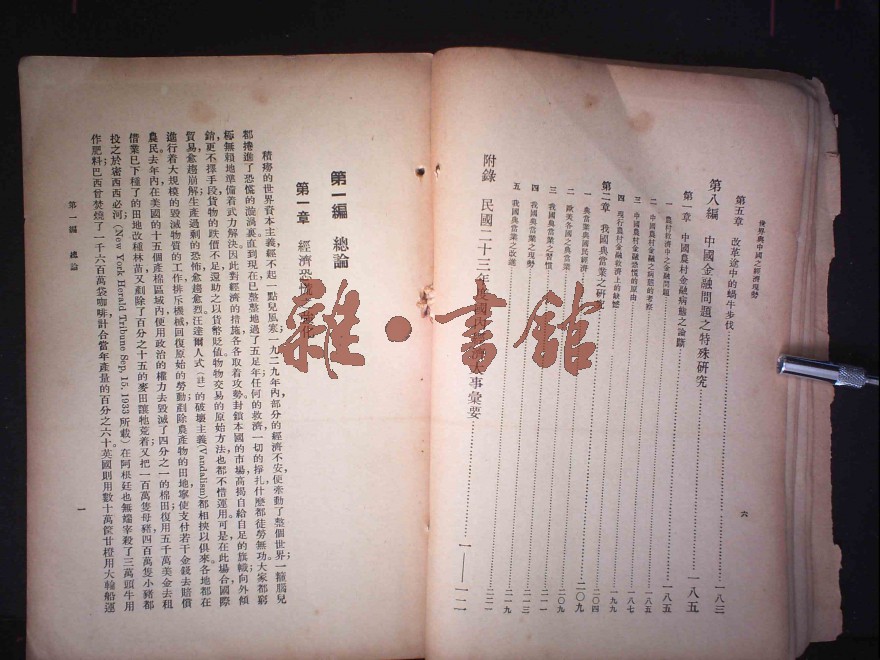 世界與中國之經濟現勢
第五章 改革途中的蝸牛步伐……一八三
第八編 中國金融問題之特殊研究……一八五
第一章 中國農村金融病態之論斷……一八五
一 農村救濟中之金融問題……一八五
二 中國農村金融之病態的考察……一八五
三 中國農村金融恐慌的原由……一八七
四 現行農村金融救濟上的缺憾……一九九
第二章 我國典當業之研究……二〇四
一 典當業與國民經濟……二〇九
二 歐美各國之典當業……二〇九
三 我國典當業之習慣……二一一
四 我國典當業之現勢……二一三
五 我國典當業之改進……二一九
附錄 民國二十三年度國內經濟大事彙要……一——一二
六
雜·書館
第一編 總論
第一章 經濟恐慌之深化
積痨的世界資本主義經不起一點兒風寒一九二九年內部分的經濟不安便牽動了整個世界;一攤腦兒
都捲進了恐慌的漩渦裏直到現在已整整地過了五足年任何的救濟一切的掙扎什麽都徒勞無功。大家都窮
極無賴地準備着武力解決因此對經濟的措施各各取着攻勢封鎖本國的市場高揭自給自足的旗幟向外傾
銷更不擇手段貨物的跌價不足還助之以貨幣貶值物物交易的原始方法也都不惜運用可是在此場合國際
貿易愈趨崩解生產過剩的恐怖愈趨愈烈汪達爾人式(註)的破壞主義(Vandalism)都相挾以俱來各地都在
進行着大規模的毀滅物質的工作排斥機械回復原始的勞動剷除農產物的田地寧使支付若干金錢去賠償
農民。去年內在美國的十五個產棉區域內便用政治的權力去毀滅了四分之一的棉田復用五千萬美金去租
借業已下種了的田地改種林苗又剷除了百分之十五的麥田讓牠荒着又把一百萬隻母豬四百萬隻小豬都
投之於密西西必河(New York Herald Tribune Sep, 15. 1933所載)在阿根廷也無端宰殺了三萬頭牛用
作肥料巴西曾焚燒了一千六百萬袋咖啡計合當年產量的百分之六十英國則用數十萬筐甘橙用大輪船運
第一編 總論
一